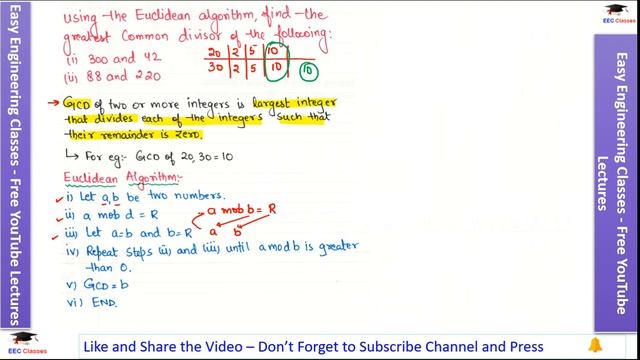 Easy Engineering Classes - Free YouTube Lectures
using the Euclidean algorithm, find the
greatest Common divisor of the following:
(i) 300 and 42
(ii) 88 and 220
20 2 5 10
30 2 5 10 10
→ GCD of two or more integers is largest integer
that divides each of the integers such that
their remainder is zero.
↳ For eg:- GCD of 20,30 = 10
Euclidean Algorithm:-
i) Let a,b be two numbers.
ii) a mob d = R
a mob b = R
a b
iii) Let a=b and b=R
iv) Repeat Steps (ii) and (iii) until a mod b is greater
than 0.
v) GCD = b
vi) END.
Like and Share the Video – Don't Forget to Subscribe Channel and Press
EEC Classes
EEC Classes
Easy Engineering Classes – Free YouTube
Lectures